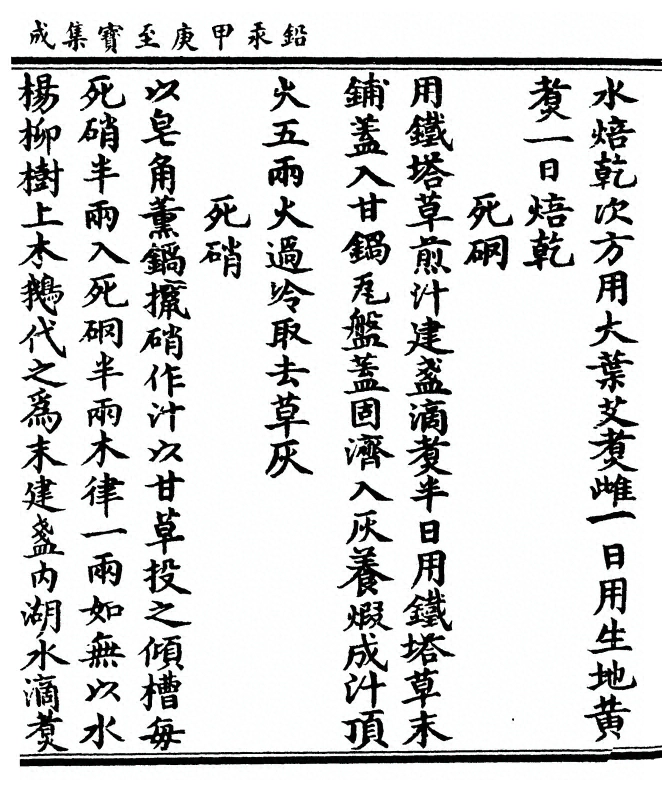 鉛汞甲庚至寶集成
水焙乾次方用大葉艾煑雌一日用生地黄
煑一日焙乾
死硇
用鐵塔草煎汁建盞滴煑半日用鐵塔草末
鋪蓋入甘鍋瓦盤蓋固濟入灰養煆成汁頂
火五兩火過冷取去草灰
死硝
以皂角薰鍋㨰硝作汁以甘草投之傾槽每
死硝半兩入死硇半兩木律一兩如無以水
楊柳樹上木鵝代之爲末建盞内湖水滴煑